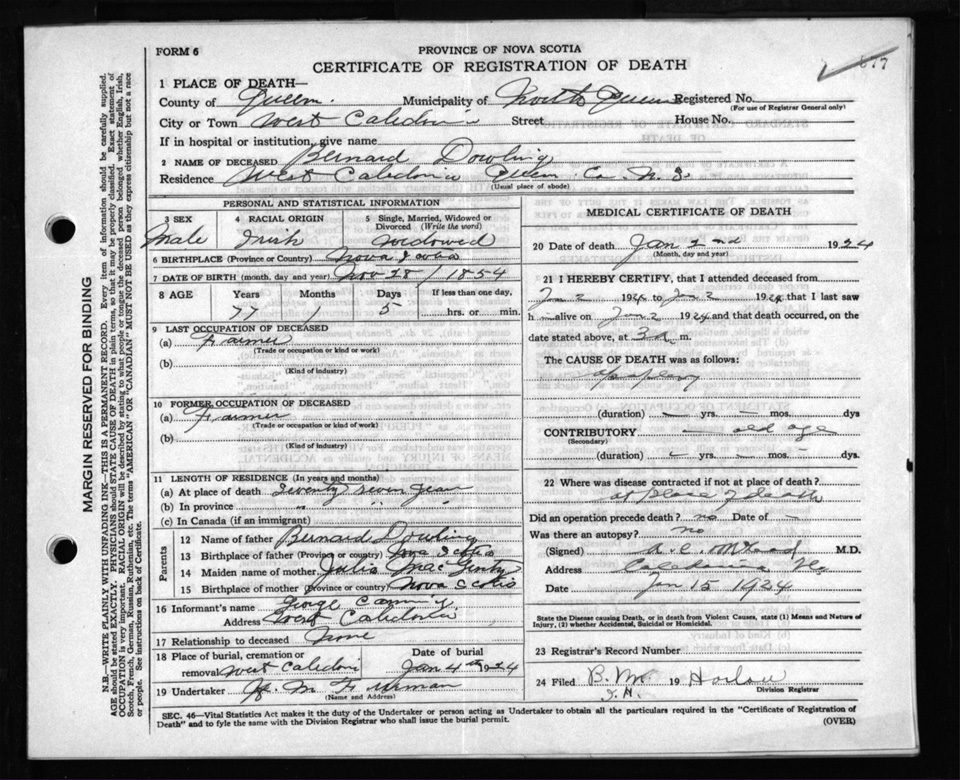 FORM 6
PROVINCE OF NOVA SCOTIA
CERTIFICATE OF REGISTRATION OF DEATH
1 PLACE OF DEATH—
County of Queens. Municipality of North Queens Registered No.
(For use of Registrar General only)
City or Town West Caledonia Street House No.
If in hospital or institution, give name
2 NAME OF DECEASED Bernard Dowling
Residence West Caledonia Queens Co. N. S.
(Usual place of abode)
PERSONAL AND STATISTICAL INFORMATION
3 SEX Male
4 RACIAL ORIGIN Irish
5 Single, Married, Widowed or Divorced (Write the word) Widowed
6 BIRTHPLACE (Province or Country) Nova Scotia
7 DATE OF BIRTH (month, day and year) Nov 28 / 1854
8 AGE Years Months Days If less than one day,
77 1 5 hrs. or min.
9 LAST OCCUPATION OF DECEASED
(a) Farmer
(Trade or occupation or kind or work)
(b)
(Kind of industry)
10 FORMER OCCUPATION OF DECEASED
(a) Farmer
(Trade or occupation or kind or work)
(b)
(Kind of industry)
11 LENGTH OF RESIDENCE (In years and months)
(a) At place of death Seventy seven years
(b) In province " " "
(c) In Canada (if an immigrant)
Parents
12 Name of father Bernard Dowling
13 Birthplace of father (Province or country) Nova Scotia
14 Maiden name of mother Julia MacGinty
15 Birthplace of mother (Province or country) Nova Scotia
16 Informant's name George
Address West Caledonia
17 Relationship to deceased None
18 Place of burial, cremation or removal West Caledoni Date of burial Jan 4th 1924
19 Undertaker
(Name and Address)
MEDICAL CERTIFICATE OF DEATH
20 Date of death Jan 2nd 1924
(Month, day and year)
21 I HEREBY CERTIFY, that I attended deceased from
Jan 2 1924 to Jan 2 1924 that I last saw
h — alive on Jan 2 1924 and that death occurred, on the
date stated above, at 3 a m.
The CAUSE OF DEATH was as follows:
apoplexy
(duration) — yrs. — mos. dys
CONTRIBUTORY — old age
(Secondary)
(duration) — yrs. — mos. - dys.
22 Where was disease contracted if not at place of death?
at place of death
Did an operation precede death? no Date of —
Was there an autopsy? no
(Signed) M.D.
Address Caledonia NS
Date Jan 15 1924
State the Disease causing Death, or in death from Violent Causes, state (1) Means and Nature of Injury, (2) whether Accidental, Suicidal or Homicidal.
23 Registrar's Record Number
24 Filed 19 Harlow
Division Registrar
SEC. 46—Vital Statistics Act makes it the duty of the Undertaker or person acting as Undertaker to obtain all the particulars required in the "Certificate of Registration of
Death" and to fyle the same with the Division Registrar who shall issue the burial permit. (OVER)
MARGIN RESERVED FOR BINDING
N.B.—WRITE PLAINLY WITH UNFADING INK—THIS IS A PERMANENT RECORD. Every item of information should be carefully supplied.
AGE should be stated EXACTLY. PHYSICIANS should STATE CAUSE OF DEATH in plain terms, so that it may be properly classified. Exact statement of
OCCUPATION is very important. RACIAL ORIGIN will be described by stating to what people or tongue the deceased person belonged whether English, Irish,
Scotch, French, German, Russian, Ruthenian, etc. The terms "AMERICAN" or "CANADIAN" MUST NOT BE USED as they express citizenship but not a race
or people. See instructions on back of Certificate.